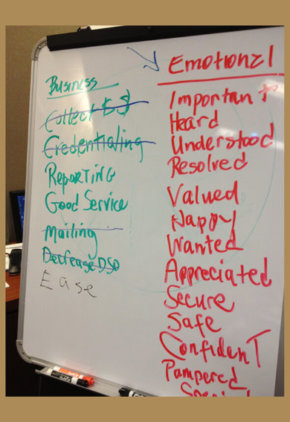 Business
Collect $$
Credentialing
Reporting
Good Service
Mailing
Decrease DSO
Ease
Emotional
Important
Heard
Understood
Resolved
Valued
Happy
Wanted
Appreciated
Secure
Safe
Confident
Pampered
Special